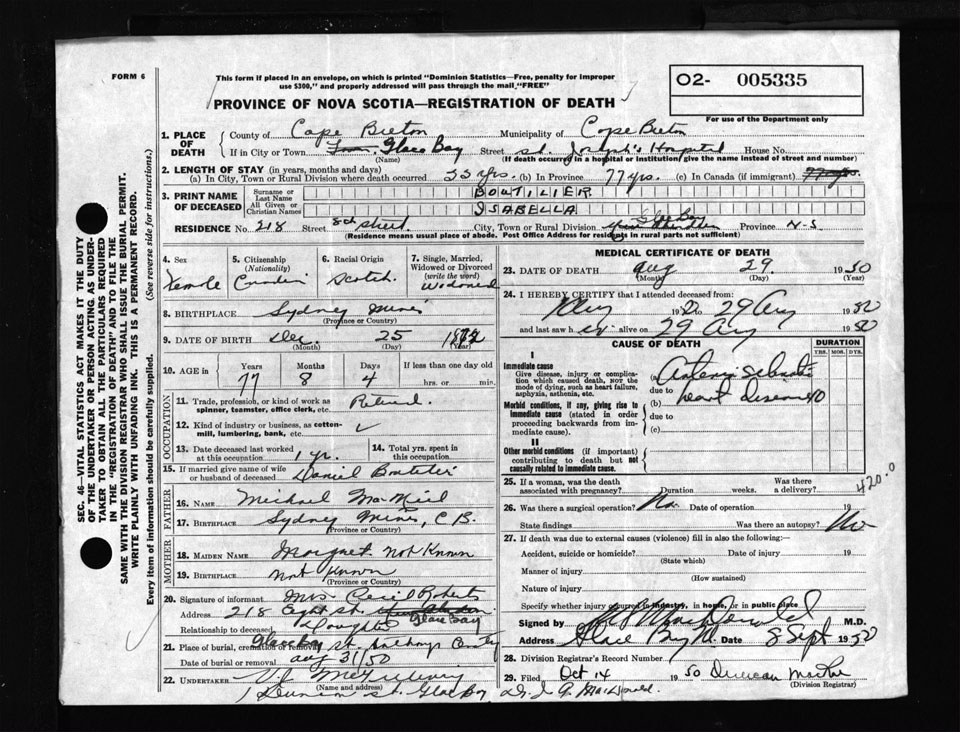 FORM 6
This form if placed in an envelope, on which is printed "Dominion Statistics—Free, penalty for improper
use $300," and properly addressed will pass through the mail "FREE"
PROVINCE OF NOVA SCOTIA—REGISTRATION OF DEATH
O2- 005335
For use of the Department only
1. PLACE OF DEATH
County of Cape Breton Municipality of Cape Breton
If in City or Town Glace Bay Street St. Joseph's Hospital House No.
(Name) (If death occurred in a hospital or institution, give the name instead of street and number)
2. LENGTH OF STAY (in years, months and days)
(a) In City, Town or Rural Division where death occurred 55 yrs. (b) In Province 77 yrs. (c) In Canada (if immigrant)
3. PRINT NAME OF DECEASED
Surname or Last Name BOUTILIER
All Given or Christian Names ISABELLA
RESIDENCE No. 218 Street 8th Street City, Town or Rural Division Glace Bay Province N-S
(Residence means usual place of abode. Post Office Address for residents in rural parts not sufficient)
4. Sex Female
5. Citizenship (Nationality) Canadian
6. Racial Origin Scotch
7. Single, Married, Widowed or Divorced (write the word) Widowed
8. BIRTHPLACE Sydney Mines
(Province or Country)
9. DATE OF BIRTH Dec. 25 1872
(Month) (Day) (Year)
10. AGE in Years 77 Months 8 Days 4 If less than one day old hrs. or min.
OCCUPATION
11. Trade, profession, or kind of work as spinner, teamster, office clerk, etc. Retired.
12. Kind of industry or business, as cotton-mill, lumbering, bank, etc. ✓
13. Date deceased last worked at this occupation 1 yr.
14. Total yrs. spent in this occupation
15. If married give name of wife or husband of deceased Daniel Boutilier
FATHER
16. NAME Michael MacNeil
17. BIRTHPLACE Sydney Mines, C.B.
(Province or Country)
MOTHER
18. MAIDEN NAME Margaret not Known
19. BIRTHPLACE not Known
(Province or Country)
20. Signature of informant Mrs Cecil Roberts
Address 218 Eight St. Glace Bay
Relationship to deceased Daughter
21. Place of burial, cremation or removal Glace Bay St. Anthonys
Date of burial or removal Aug 31/50
22. UNDERTAKER V.J. McGillivray
(Name and address)
St. Glace Bay
MEDICAL CERTIFICATE OF DEATH
23. DATE OF DEATH Aug 29. 1950
(Month) (Day)
24. I HEREBY CERTIFY that I attended deceased from:
to 29 Aug 1950
and last saw h er alive on 29 Aug 1950
CAUSE OF DEATH
DURATION
YRS. MOS. DYS.
I
Immediate cause
Give disease, injury or complication which caused death, NOT the mode of dying, such as heart failure, asphyxia, asthenia, etc.
(a) Arterio Sclerotic
due to heart disease 10
Morbid conditions, if any, giving rise to immediate cause (stated in order proceeding backwards from immediate cause).
(b)
due to
(c)
II
Other morbid conditions (if important) contributing to death but not causally related to immediate cause.
420.0
25. If a woman, was the death associated with pregnancy? Duration weeks. Was there a delivery?
26. Was there a surgical operation? No. Date of operation 19
State findings Was there an autopsy? No
27. If death was due to external causes (violence) fill in also the following:—
Accident, suicide or homicide? Date of injury 19
(State which)
Manner of injury
(How sustained)
Nature of injury
Specify whether injury occurred in industry, in home, or in public place
Signed by M.D.
Address Glace Bay N.S. Date 8 Sept 1950
28. Division Registrar's Record Number
29. Filed Oct 14 1950 Duncan
(Division Registrar)
MacDonald.
SEC. 46—VITAL STATISTICS ACT MAKES IT THE DUTY
OF THE UNDERTAKER OR PERSON ACTING AS UNDER-
TAKER TO OBTAIN ALL THE PARTICULARS REQUIRED
IN THE "REGISTRATION OF DEATH" AND TO FILE THE
SAME WITH THE DIVISION REGISTRAR WHO SHALL ISSUE THE BURIAL PERMIT.
WRITE PLAINLY WITH UNFADING INK. THIS IS A PERMANENT RECORD.
Every item of information should be carefully supplied. (See reverse side for instructions.)